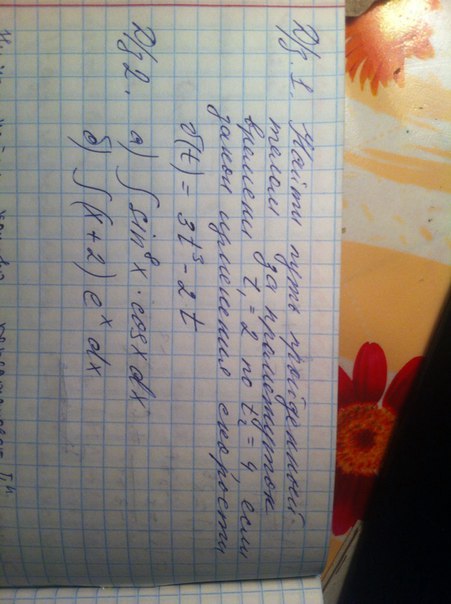 Д/з. 1. Найти путь пройденный
телом за промежуток
времени t₁ = 2 по t₂ = 4, если
закон изменения скорости
v(t) = 3t³ - 2t
Д/з 2. а) ∫ sin⁸ x · cos x dx
б) ∫ (x + 2) eˣ dx